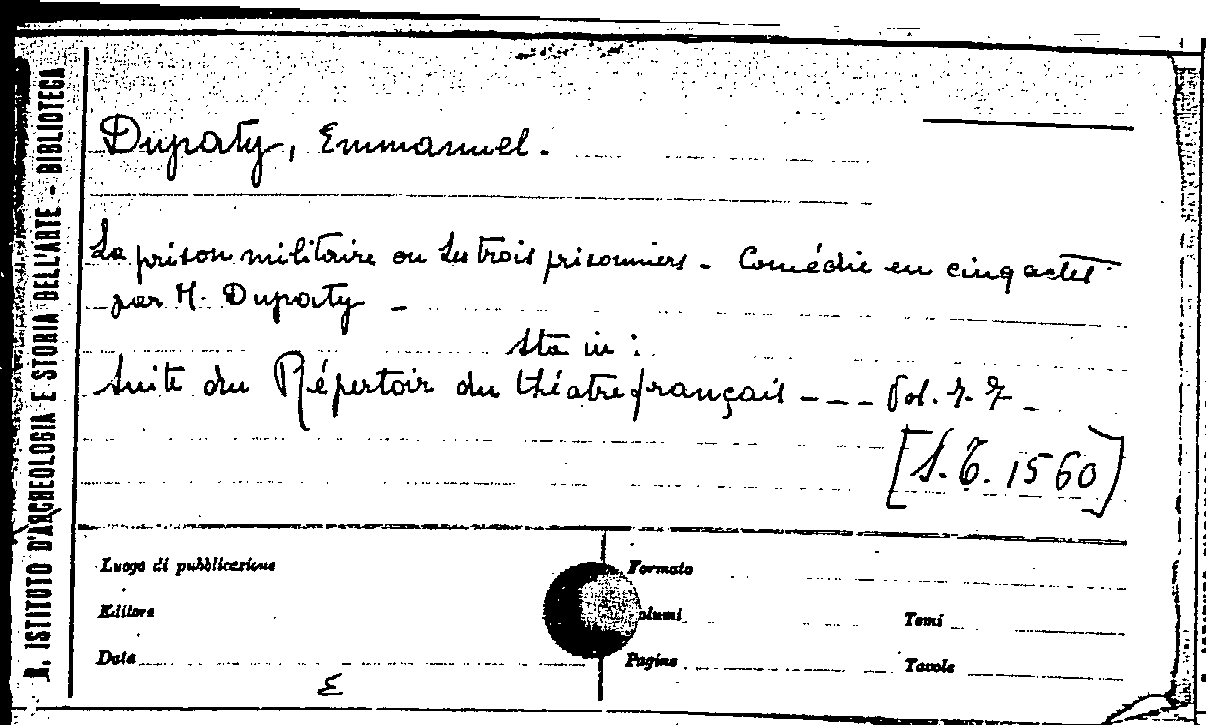 R. ISTITUTO D'ARCHEOLOGIA E STORIA DELL'ARTE - BIBLIOTECA
Dupaty, Emmanuel.
La prison militaire ou Les trois prisonniers - Comédie en cinq actes
par M. Dupaty -
Sta in:
Suite du Répertoir du théatre français - - - Vol. 
[S.T. 1560]
Luogo di pubblicazione
Formato
Editore
Volumi
Tomi
Data
Pagine
Tavole
E